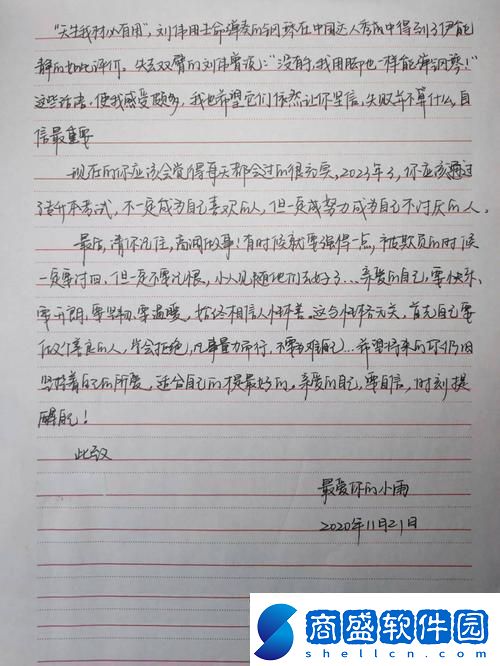 "天生我材必有用",刘伟用生命弹奏的钢琴在中国达人秀中得到了伊能
静的如此评价。失去双臂的刘伟曾说:"没有手,我用脚也一样能弹钢琴!"
这些话语,使我感受颇多,我也希望它们依然让你坚信,失败并不算什么,自
信最重要
现在的你应该会觉得每天都会过的很充实,2023年了,你应该通过
专升本考试,不一定成为自己喜欢的人,但一定成努力成为自己不讨厌的人。
最后,请你记住,高调做事!有时候就要强得一点,被欺负的时候
一定要讨回,但一定不要记恨,小人见随他们去好了…亲爱的自己,要快乐、
要开朗、要坚韧、要温暖,始终相信人性本善。这与性格无关,首先自己要
做个善良的人,学会拒绝,凡事量力而行,不要为难自己…希望将来的你仍旧
坚持着自己的所爱,适合自己的才是最好的。亲爱的自己,要自信,时刻提
醒自己!
此致
最爱你的小雨
2020年11月21日
商盛软件园
shellcn.com